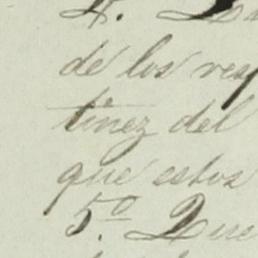 4.
de los res
tinez del
que estos
5º Que